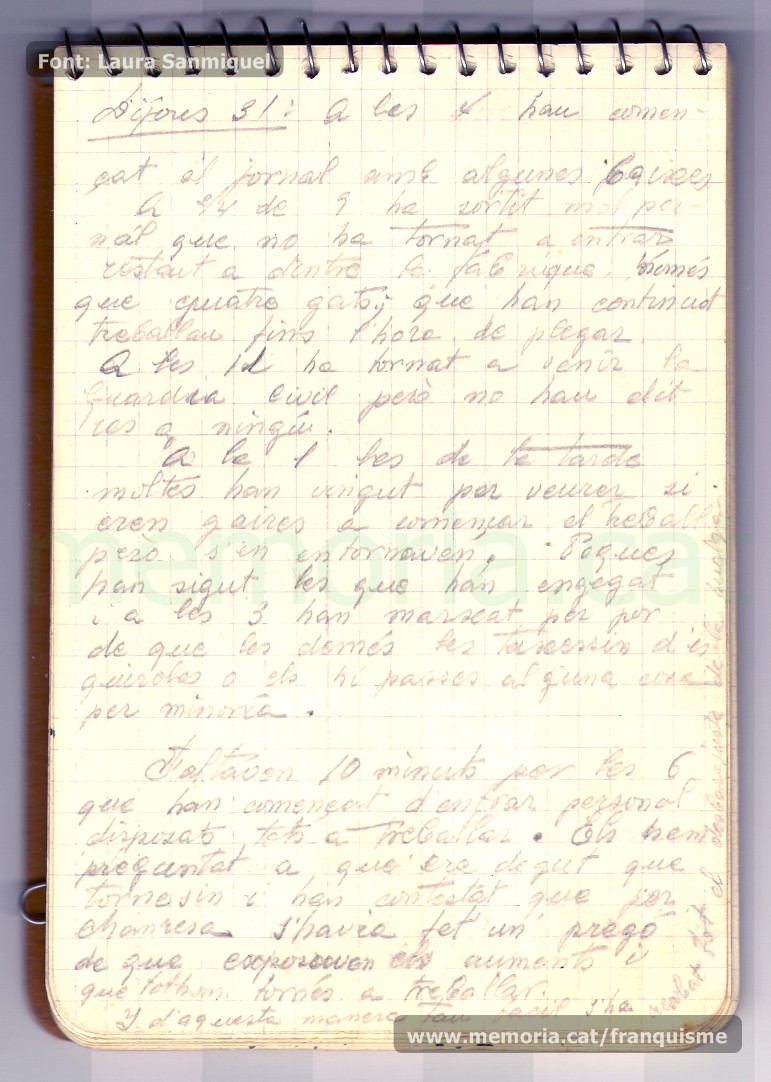 Font: Laura Sanmiquel
Dijous 31: A les 4 han comen-
çat el jornal amb algunes baixes
A 1/4 de 9 ha sortit mol per-
nal que no ha tornat a entrar
restant a dintre la fàbrica només
que quatre gats; que han continuat
treballan fins l'hora de plegar.
A les 12 ha tornat a venir la
Guardia Civil però no han dit
res a ningú.
A la 1 les de la tarda
moltes han vingut per veurer si
eren gaires a començar el treball
però s'en entornaven. Poques
han sigut les que han engegat
i a les 3 han marxat per por
de que les demés les tracessin d'es
quiroles o els hi passes alguna cosa
per minoria.
Faltavan 10 minuts per les 6
que han començat d'entrar personal
disposats tots a treballar. Els hem
preguntat a que era degut que
tornesin i han contestat que per
Manresa s'havia fet un pregó
de que exposaven els auments i
que tothom tornés a treballar.
Y d'aquesta manera tan facil s'ha
acabat tot el desbarajuste de la huelga
memoria.cat
www.memoria.cat/franquisme